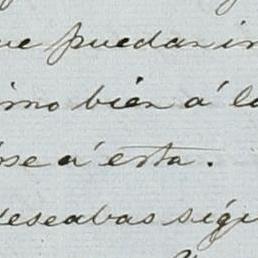 ue puedan in
imo bien á la
rse a' esta.
deseabas segu